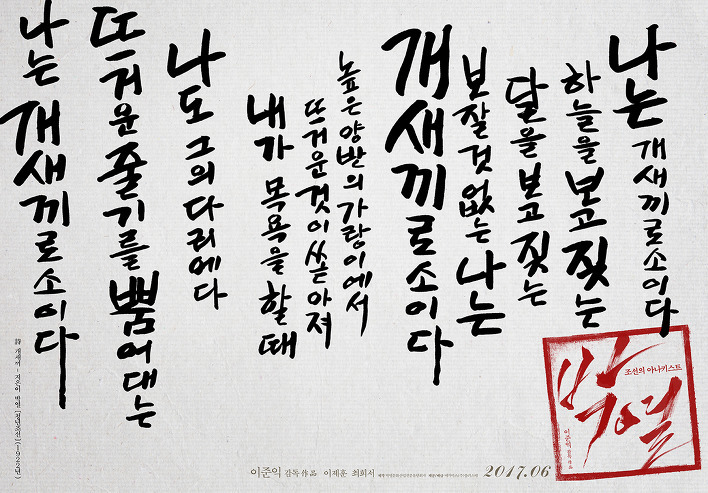 나는 개새끼로소이다
하늘을 보고 짖는
달을 보고 짖는
보잘것없는 나는
개새끼로소이다
높은 양반의 가랑이에서
뜨거운 것이 쏟아져
내가 목욕을 할 때
나도 그의 다리에다
뜨거운 줄기를 뿜어대는
나는 개새끼로소이다
詩 개새끼 - 지은이 박열 [청년조선] (1922년)
조선의 아나키스트
박열
이준익 감독 作品
이준익 감독 作品 이제훈 최희서
2017.06